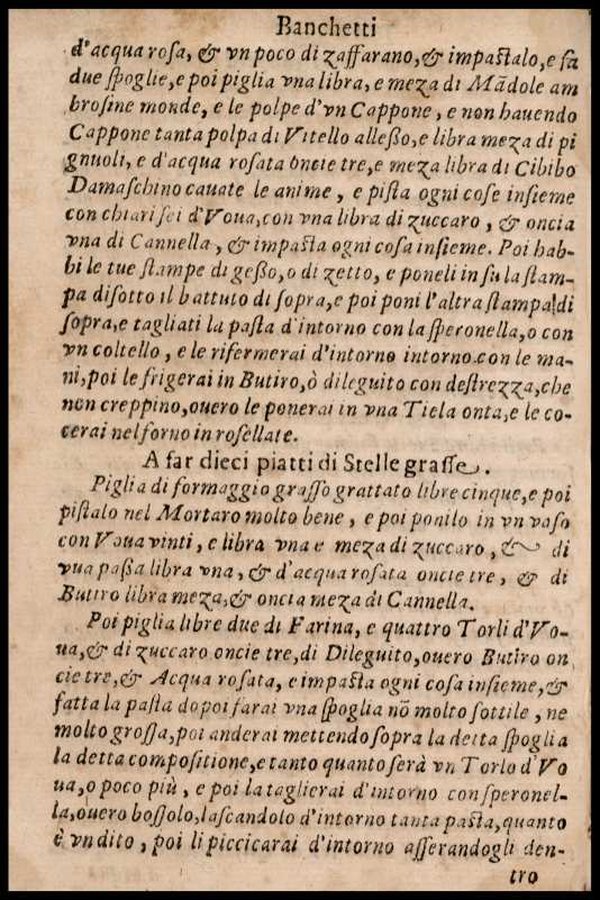 Banchetti
d'acqua rosa, & vn poco di zaffarano, & impastalo, e fa
due spoglie, e poi piglia vna libra, e meza di Mãdole am
brosine monde, e le polpe d'vn Cappone, e non hauendo
Cappone tanta polpa di Vitello allesso, e libra meza di pi
gnuoli, e d'acqua rosata oncie tre, e meza libra di Cibibo
Damaschino cauate le anime, e pista ogni cose insieme
con chiari sei d'Voua, con vna libra di zuccaro, & oncia
vna di Cannella, & impasta ogni cosa insieme. Poi hab-
bi le tue stampe di gesso, o di zetto, e poneli in su la stam-
pa disotto il battuto di sopra, e poi poni l'altra stampa di
sopra, e tagliati la pasta d'intorno con la speronella, o con
vn coltello, e le rifermerai d'intorno intorno con le ma-
ni, poi le frigerai in Butiro, ò dileguito con destrezza, che
non creppino, ouero le ponerai in vna Tiela onta, e le co-
cerai nel forno in rosellate.
A far dieci piatti di Stelle grasse.
Piglia di formaggio grasso grattato libre cinque, e poi
pistalo nel Mortaro molto bene, e poi ponilo in vn vaso
con Voua vinti, e libra vna e meza di zuccaro, & di
vua passa libra vna, & d'acqua rosata oncie tre, & di
Butiro libra meza, & oncia meza di Cannella.
Poi piglia libre due di Farina, e quattro Torli d'Vo-
ua, & di zuccaro oncie tre, di Dileguito, ouero Butiro on
cie tre, & Acqua rosata, e impasta ogni cosa insieme, &
fatta la pasta dopoi farai vna spoglia nõ molto sottile, ne
molto grossa, poi anderai mettendo sopra la detta spoglia
la detta compositione, e tanto quanto serà vn Torlo d'Vo
ua, o poco più, e poi la taglierai d'intorno con speronel-
la, ouero bossolo, lascandolo d'intorno tanta pasta, quanto
è vn dito, poi li piccicarai d'intorno asserandogli den-
tro